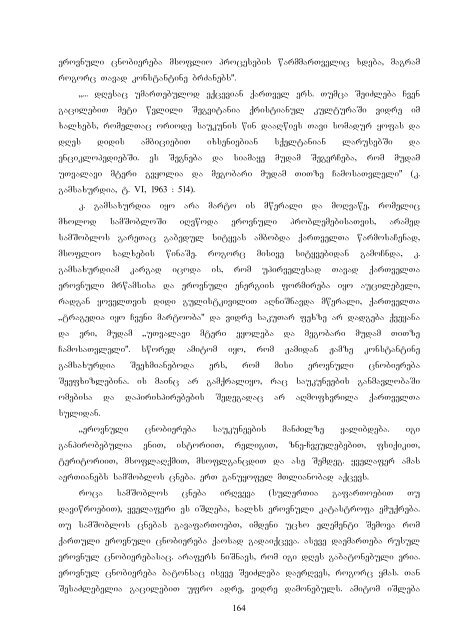 ეროვნული ცნობიერება მსოფლიო პროცესების წარმმართველიც ხდება, მაგრამ
როგორც თავად კონსტანტინე ბრძანებს".
„... დღესაც უმართებულოდ ექცევიან ქართველ ერს. თუმცა შეიძლება ჩვენ
გაცილებით მეტი წვლილი შეგვიტანია ქრისტიანულ კულტურაში ვიდრე იმ
ხალხებს, რომელთაც ორიოდე საუკუნის წინ დააღწიეს თავი სომადურ ყოფას და
დღეს დიდის ამბიციებით იხსენიებიან სქელტანიან ლარუსებში და
ენციკლოპედიებში. ეს შეგნება და სიამაყე მუდამ შეგერჩება, რომ მუდამ
უთვალავი მტერი გვყოლია და მეგობარი მუდამ თითზე ჩამოსათვლელი" (კ.
გამსახურდია, ტ. VI, 1963 : 514).
კ. გამსახურდია იყო არა მარტო ის მწერალი და მოღვაწე, რომელიც
მხოლოდ სამშობლოში იღვწოდა ეროვნული პრობლემებისათვის, არამედ
სამშობლოს გარეთაც გაბედულ სიტყვას ამბობდა ქართველთა წარმოსაჩენად,
მსოფლიო ხალხების წინაშე. როგორც მისივე სიტყვებიდან გამოჩნდა, კ.
გამსახურდიამ კარგად იცოდა ის, რომ უპირველესად თავად ქართველთა
ეროვნული მრწამსისა და ეროვნული ენერგიის ფორმირება იყო აუცილებელი,
რადგან ყოველთვის დიდი გულისტკივილით აღნიშნავდა მწერალი, ქართველთა
„ტრაგედია იყო ჩვენი მარტოობა" და ვიდრე საკუთარ ფეხზე არ დადგება ქვეყანა
და ერი, მუდამ „უთვალავი მტერი ეყოლება და მეგობარი მუდამ თითზე
ჩამოსათვლელი". სწორედ ამიტომ იყო, რომ ჟამიდან ჟამზე კონსტანტინე
გამსახურდია შეეხმიანებოდა ერს, რომ მისი ეროვნული ცნობიერება
შეეფხიზლებინა. ის მაინც არ გამქრალიყო, რაც საუკუნეების განმავლობაში
ომებისა და დაპირისპირებების შედეგადაც არ აღმოფხვრილა ქართველთა
სულიდან.
„ეროვნული ცნობიერება საუკუნეების მანძილზე ყალიბდება. იგი
განპირობებულია ენით, ისტორიით, რელიგით, ზნე-ჩვეულებებით, ფსიქიკით,
ტერიტორიით, მსოფლაღქმით, მსოფლგანცდით და ასე შემდეგ. ყველაფერ ამას
აერთიანებს სამშობლოს ცნება. ერთ განუყოფელ მთლიანობად აქცევს.
როცა სამშობლოს ცნება ირღვევა (სულერთია გაფართოებით თუ
დავიწროებით), ყველაფერი ეს იშლება, ხალხს ეროვნული კატასტროფა ემუქრება.
თუ სამშობლოს ცნებას გავაფართოებთ, იმდენი უცხო ელემენტი შემოვა რომ
ქართული ეროვნული ცნობიერება ქაოსად გადაიქცევა. ასევე დაემართება რუსულ
ეროვნულ ცნობიერებასაც. არაფერს ნიშნავს, რომ იგი დღეს გაბატონებული ერია.
ეროვნული ცნობიერება ბატონსაც ისევე შეიძლება დაერღვეს, როგორც ყმას. თან
შესაძლებელია გაცილებით უფრო ადრე, ვიდრე დამონებულს. ამიტომ იშლება
164